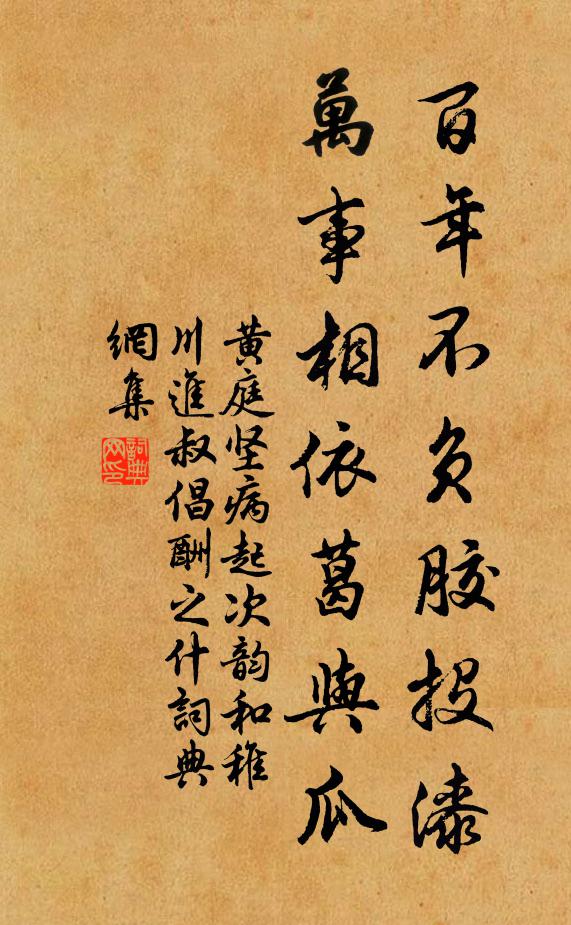 百年不负胶投漆
萬事相依葛與瓜
黄庭坚病起次韵和稚
川進叔倡酬之什詞典
網集
詞典网印